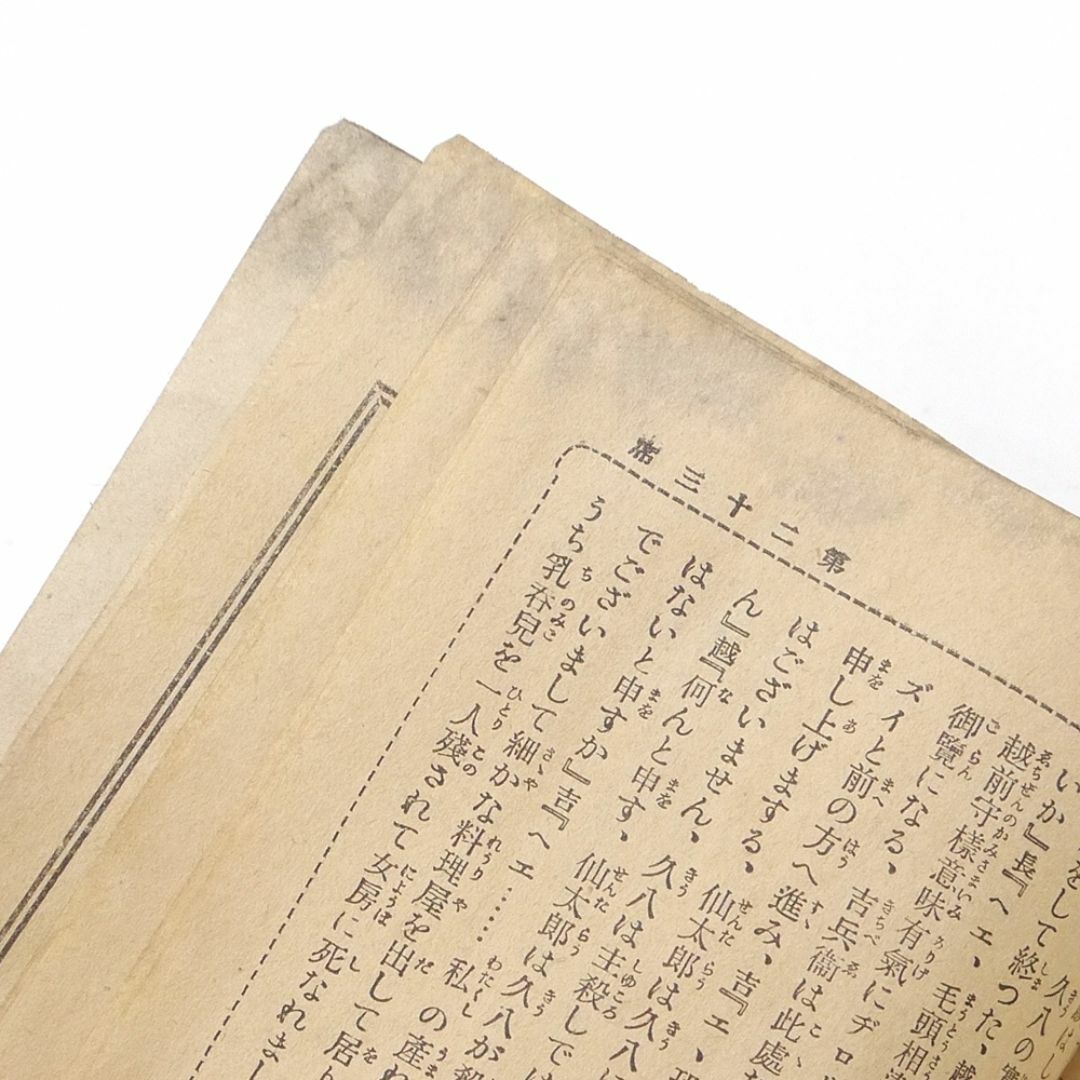 第二十三席
久八の
をして終つた、越
いか』長『ヘエ、毛頭相違
越前守樣意味有氣にヂロ
御覽になる、吉兵衞は此處
ズイと前の方へ進み、吉『エ、理
申し上げまする、仙太郎は久八に
はございません、久八は主殺しでは
ん』越『何んと申す、仙太郎は久八が殺
はないと申すか』吉『ヘエ……私しの産れ
でございまして細かな料理屋を出して居り
うち乳呑兒を一人殘されて女房に死なれまし